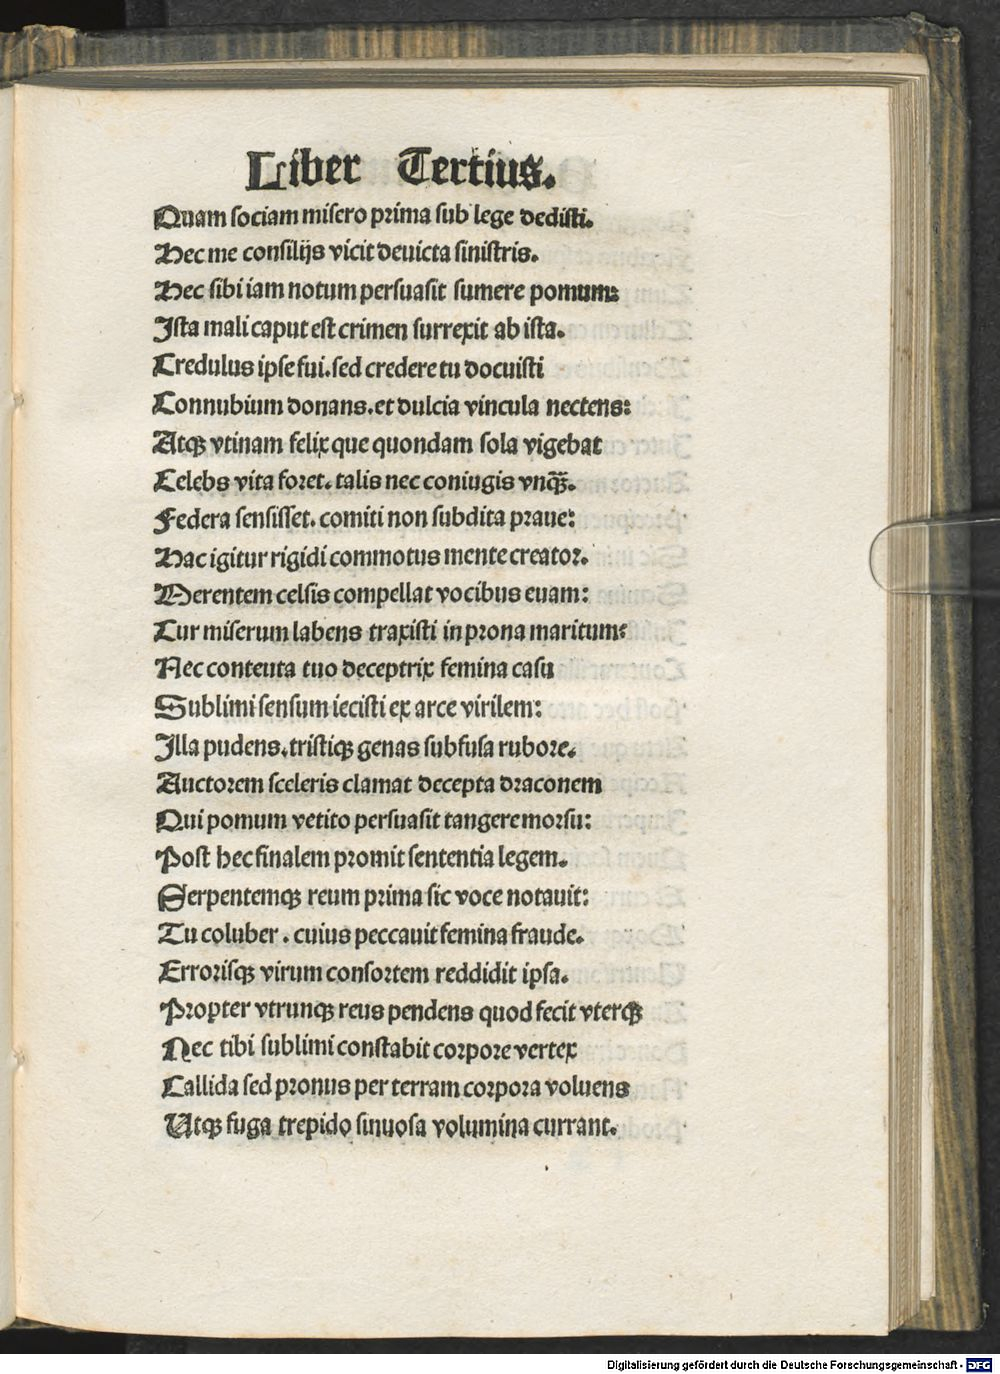 Liber Tertius.
Quam sociam misero prima sub lege dedisti.
Hec me consilijs vicit deuicta sinistris.
Hec sibi iam notum persuasit sumere pomum:
Ista mali caput est crimen surrexit ab ista.
Credulus ipse fui. sed credere tu docuisti
Connubium donans. et dulcia vincula nectens:
Atqꝫ vtinam felix que quondam sola vigebat
Celebs vita foret. talis nec coniugis vnqꝫ̃.
Federa sensisset. comiti non subdita praue:
Hac igitur rigidi commotus mente creator.
Merentem celsis compellat vocibus euam:
Cur miserum labens traxisti in prona maritum:
Nec conteuta tuo deceptrix femina casu
Sublimi sensum iecisti ex arce virilem:
Illa pudens. tristiqꝫ genas subfusa rubore.
Auctorem sceleris clamat decepta draconem
Qui pomum vetito persuasit tangere morsu:
Post hec finalem promit sententia legem.
Serpentemqꝫ reum prima sic voce notauit:
Tu coluber. cuius peccauit femina fraude.
Errorisqꝫ virum consortem reddidit ipsa.
Propter vtrunqꝫ reus pendens quod fecit vterqꝫ
Nec tibi sublimi constabit corpore vertex
Callida sed pronus per terram corpora voluens
Utqꝫ fuga trepido sinuosa volumina currant.
Digitalisierung gefördert durch die Deutsche Forschungsgemeinschaft - DFG